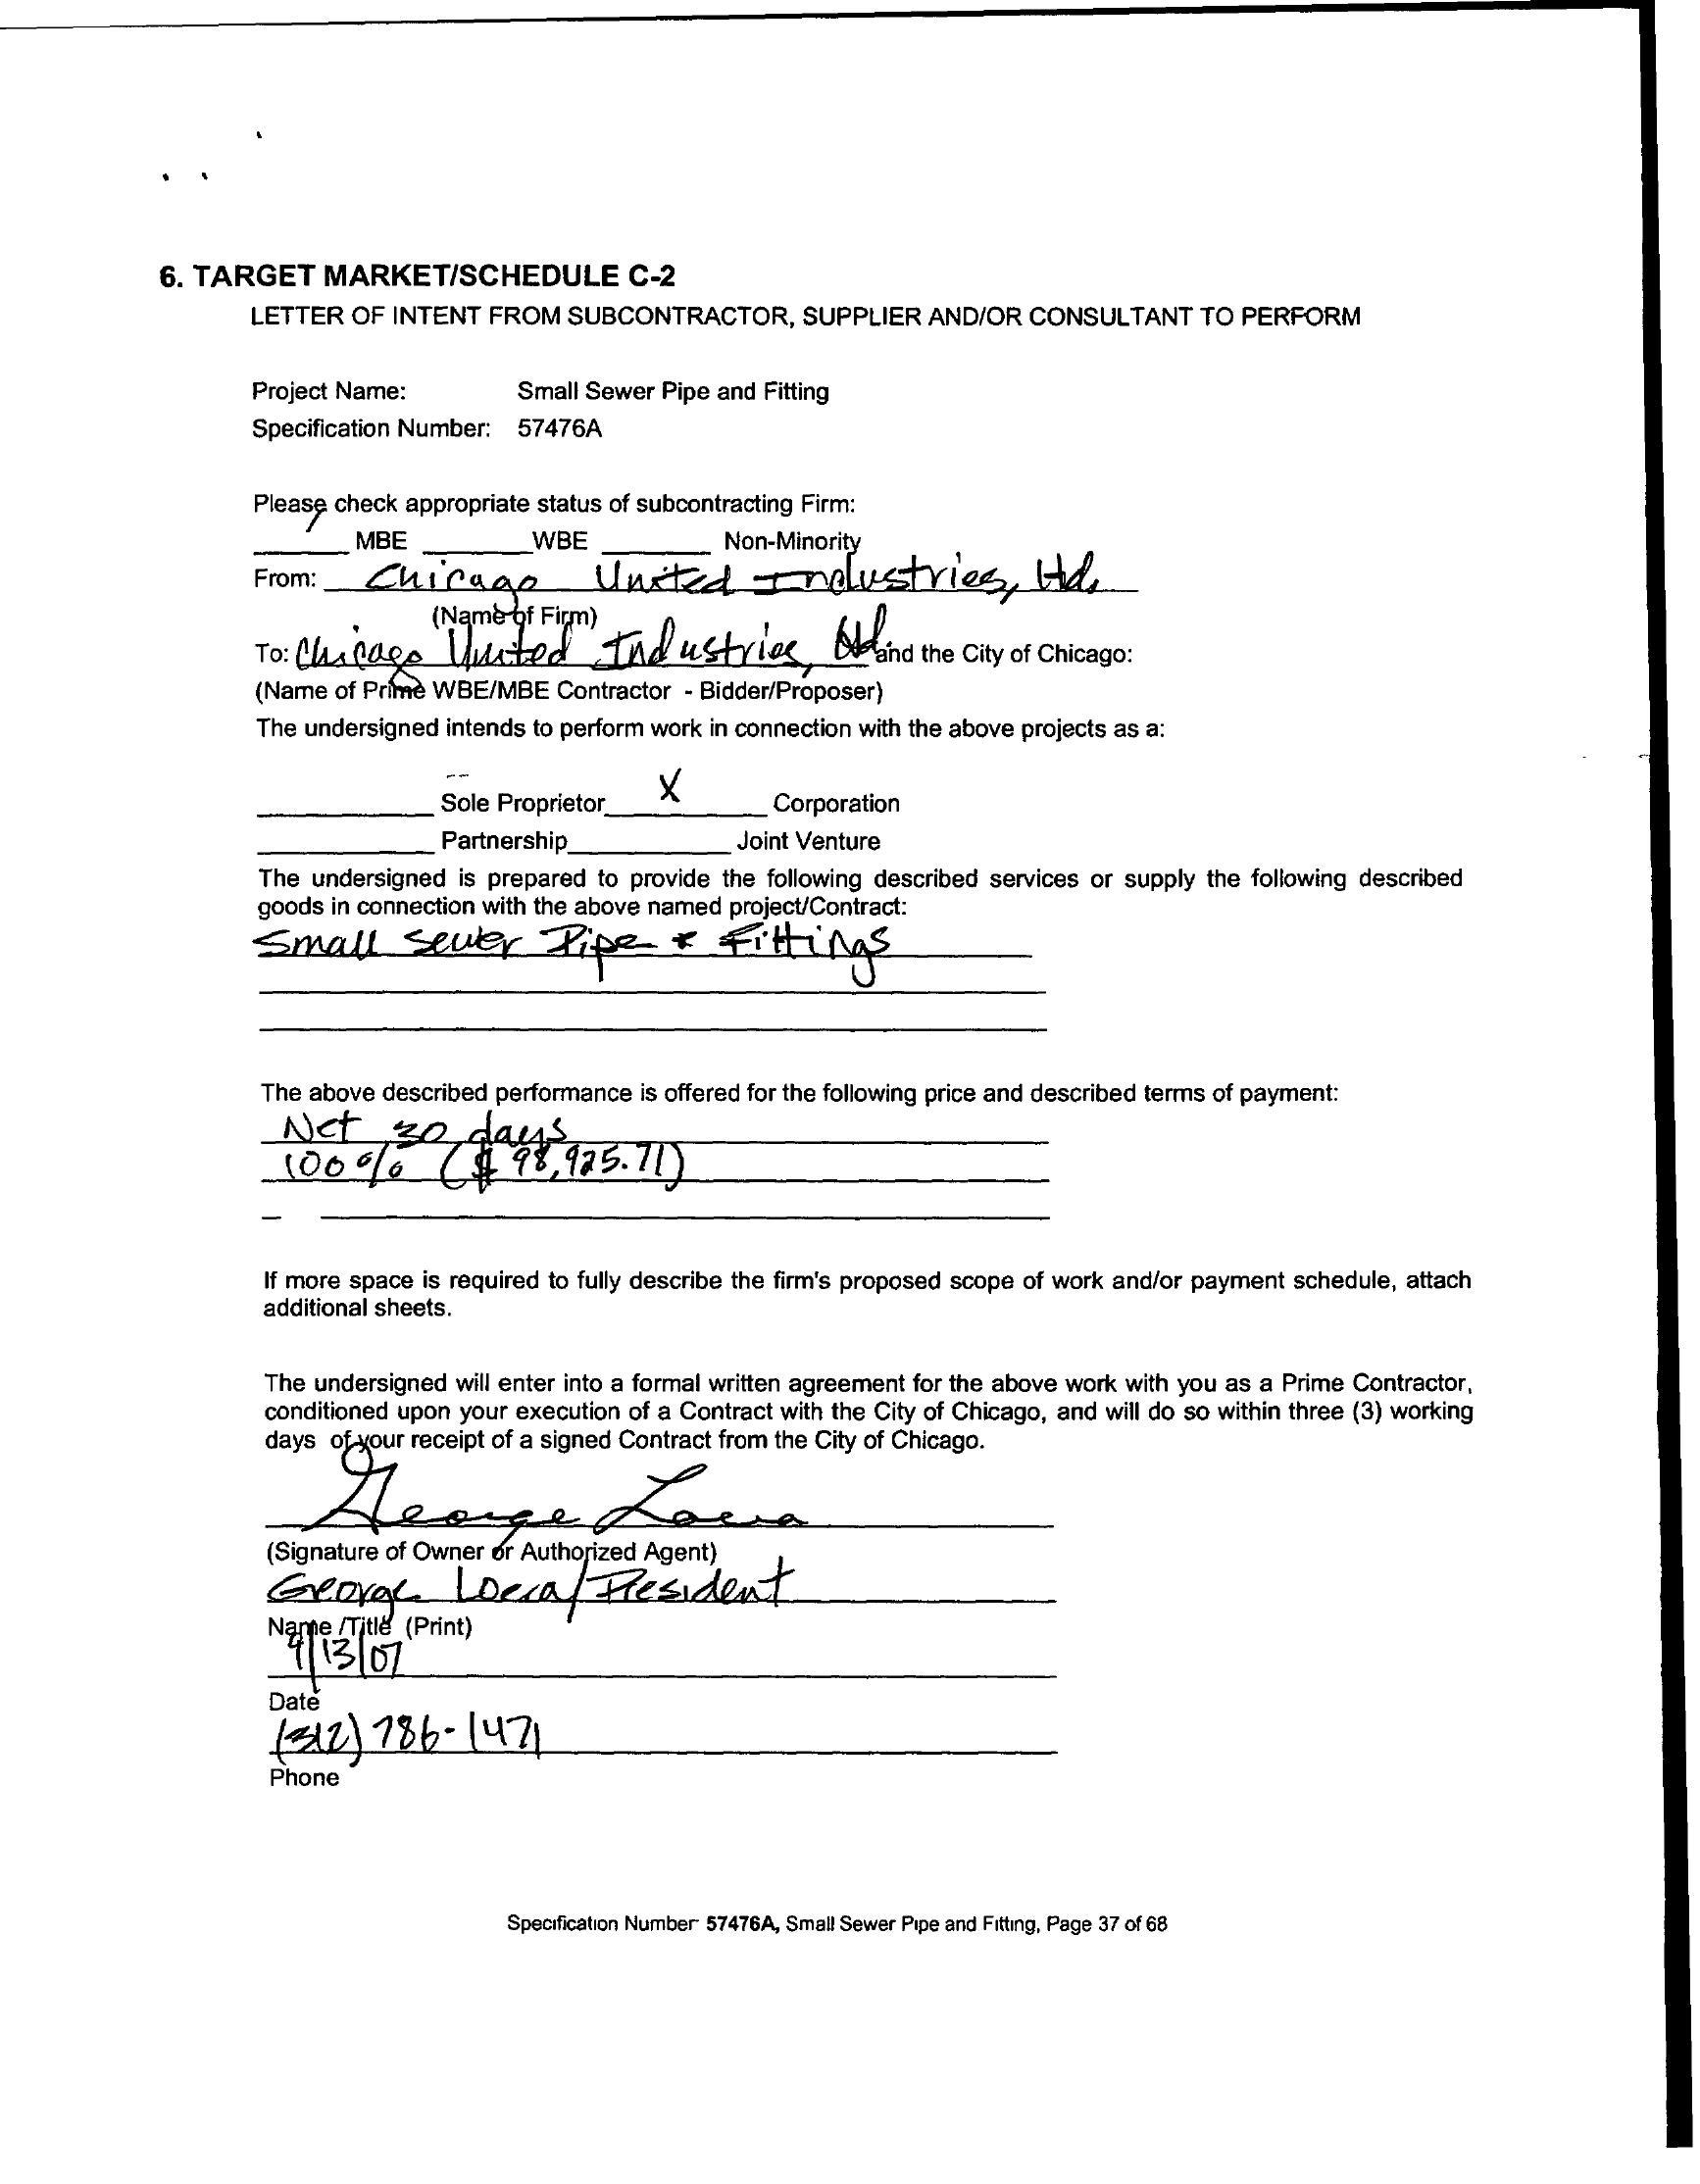 6. TARGET MARKET/SCHEDULE C-2
LETTER OF INTENT FROM SUBCONTRACTOR, SUPPLIER AND/OR CONSULTANT TO PERFORM
Project Name: Small Sewer Pipe and Fitting
Specification Number: 57476A
Please check appropriate status of subcontracting Firm:
______ MBE ______ WBE ______ Non-Minority
From: Chicago United Industries, Ltd.
(Name of Firm)
To: Chicago United Industries, Ltd and the City of Chicago:
(Name of Prime WBE/MBE Contractor - Bidder/Proposer)
The undersigned intends to perform work in connection with the above projects as a:
______ Sole Proprietor X Corporation
______ Partnership ______ Joint Venture
The undersigned is prepared to provide the following described services or supply the following described
goods in connection with the above named project/Contract:
Small Sewer Pipe & Fittings
The above described performance is offered for the following price and described terms of payment:
Net 30 days
100% ($98,925.71)
If more space is required to fully describe the firm's proposed scope of work and/or payment schedule, attach
additional sheets.
The undersigned will enter into a formal written agreement for the above work with you as a Prime Contractor,
conditioned upon your execution of a Contract with the City of Chicago, and will do so within three (3) working
days of your receipt of a signed Contract from the City of Chicago.
George Loera
(Signature of Owner or Authorized Agent)
George Loera/President
Name /Title (Print)
9/13/07
Date
(312) 786-1471
Phone
Specification Number 57476A, Small Sewer Pipe and Fitting, Page 37 of 68